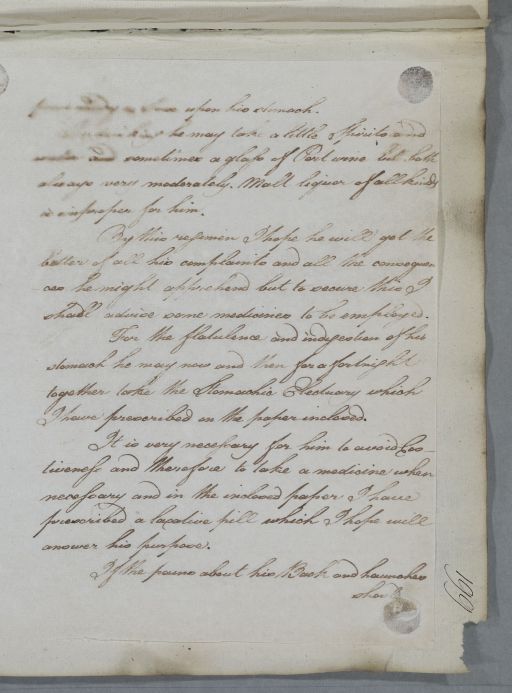 upon his stomach.
he may take a little Spirits and
and sometimes a glass of Port wine but both
always very moderately. Malt liquor of all kinds
is improper for him.
By this regimen I hope he will get the
better of all his complaints and all the consequen
ces he might apprehend but to secure this I
shall advise some medicines to be employed.
For the flatulence and indigestion of his
stomach he may now and then for a fortnight
together take the Stomachic Electuary which
I have prescribed on the paper inclosed.
It is very necessary for him to avoid Cos-
tiveness and therefore to take a medicine when
necessary and in the inclosed paper I have
prescribed a laxative pill which I hope will
answer his purpose.
If the pains about his Back and haunches
shou
199